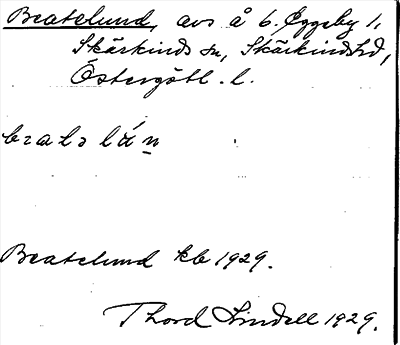 Beatelund, avs å 6. Eggeby 1,
Skärkinds sn, Skärkinds hd,
Östergötl. l.
Beatelund kb 1929.
Thord Lindell 1929.